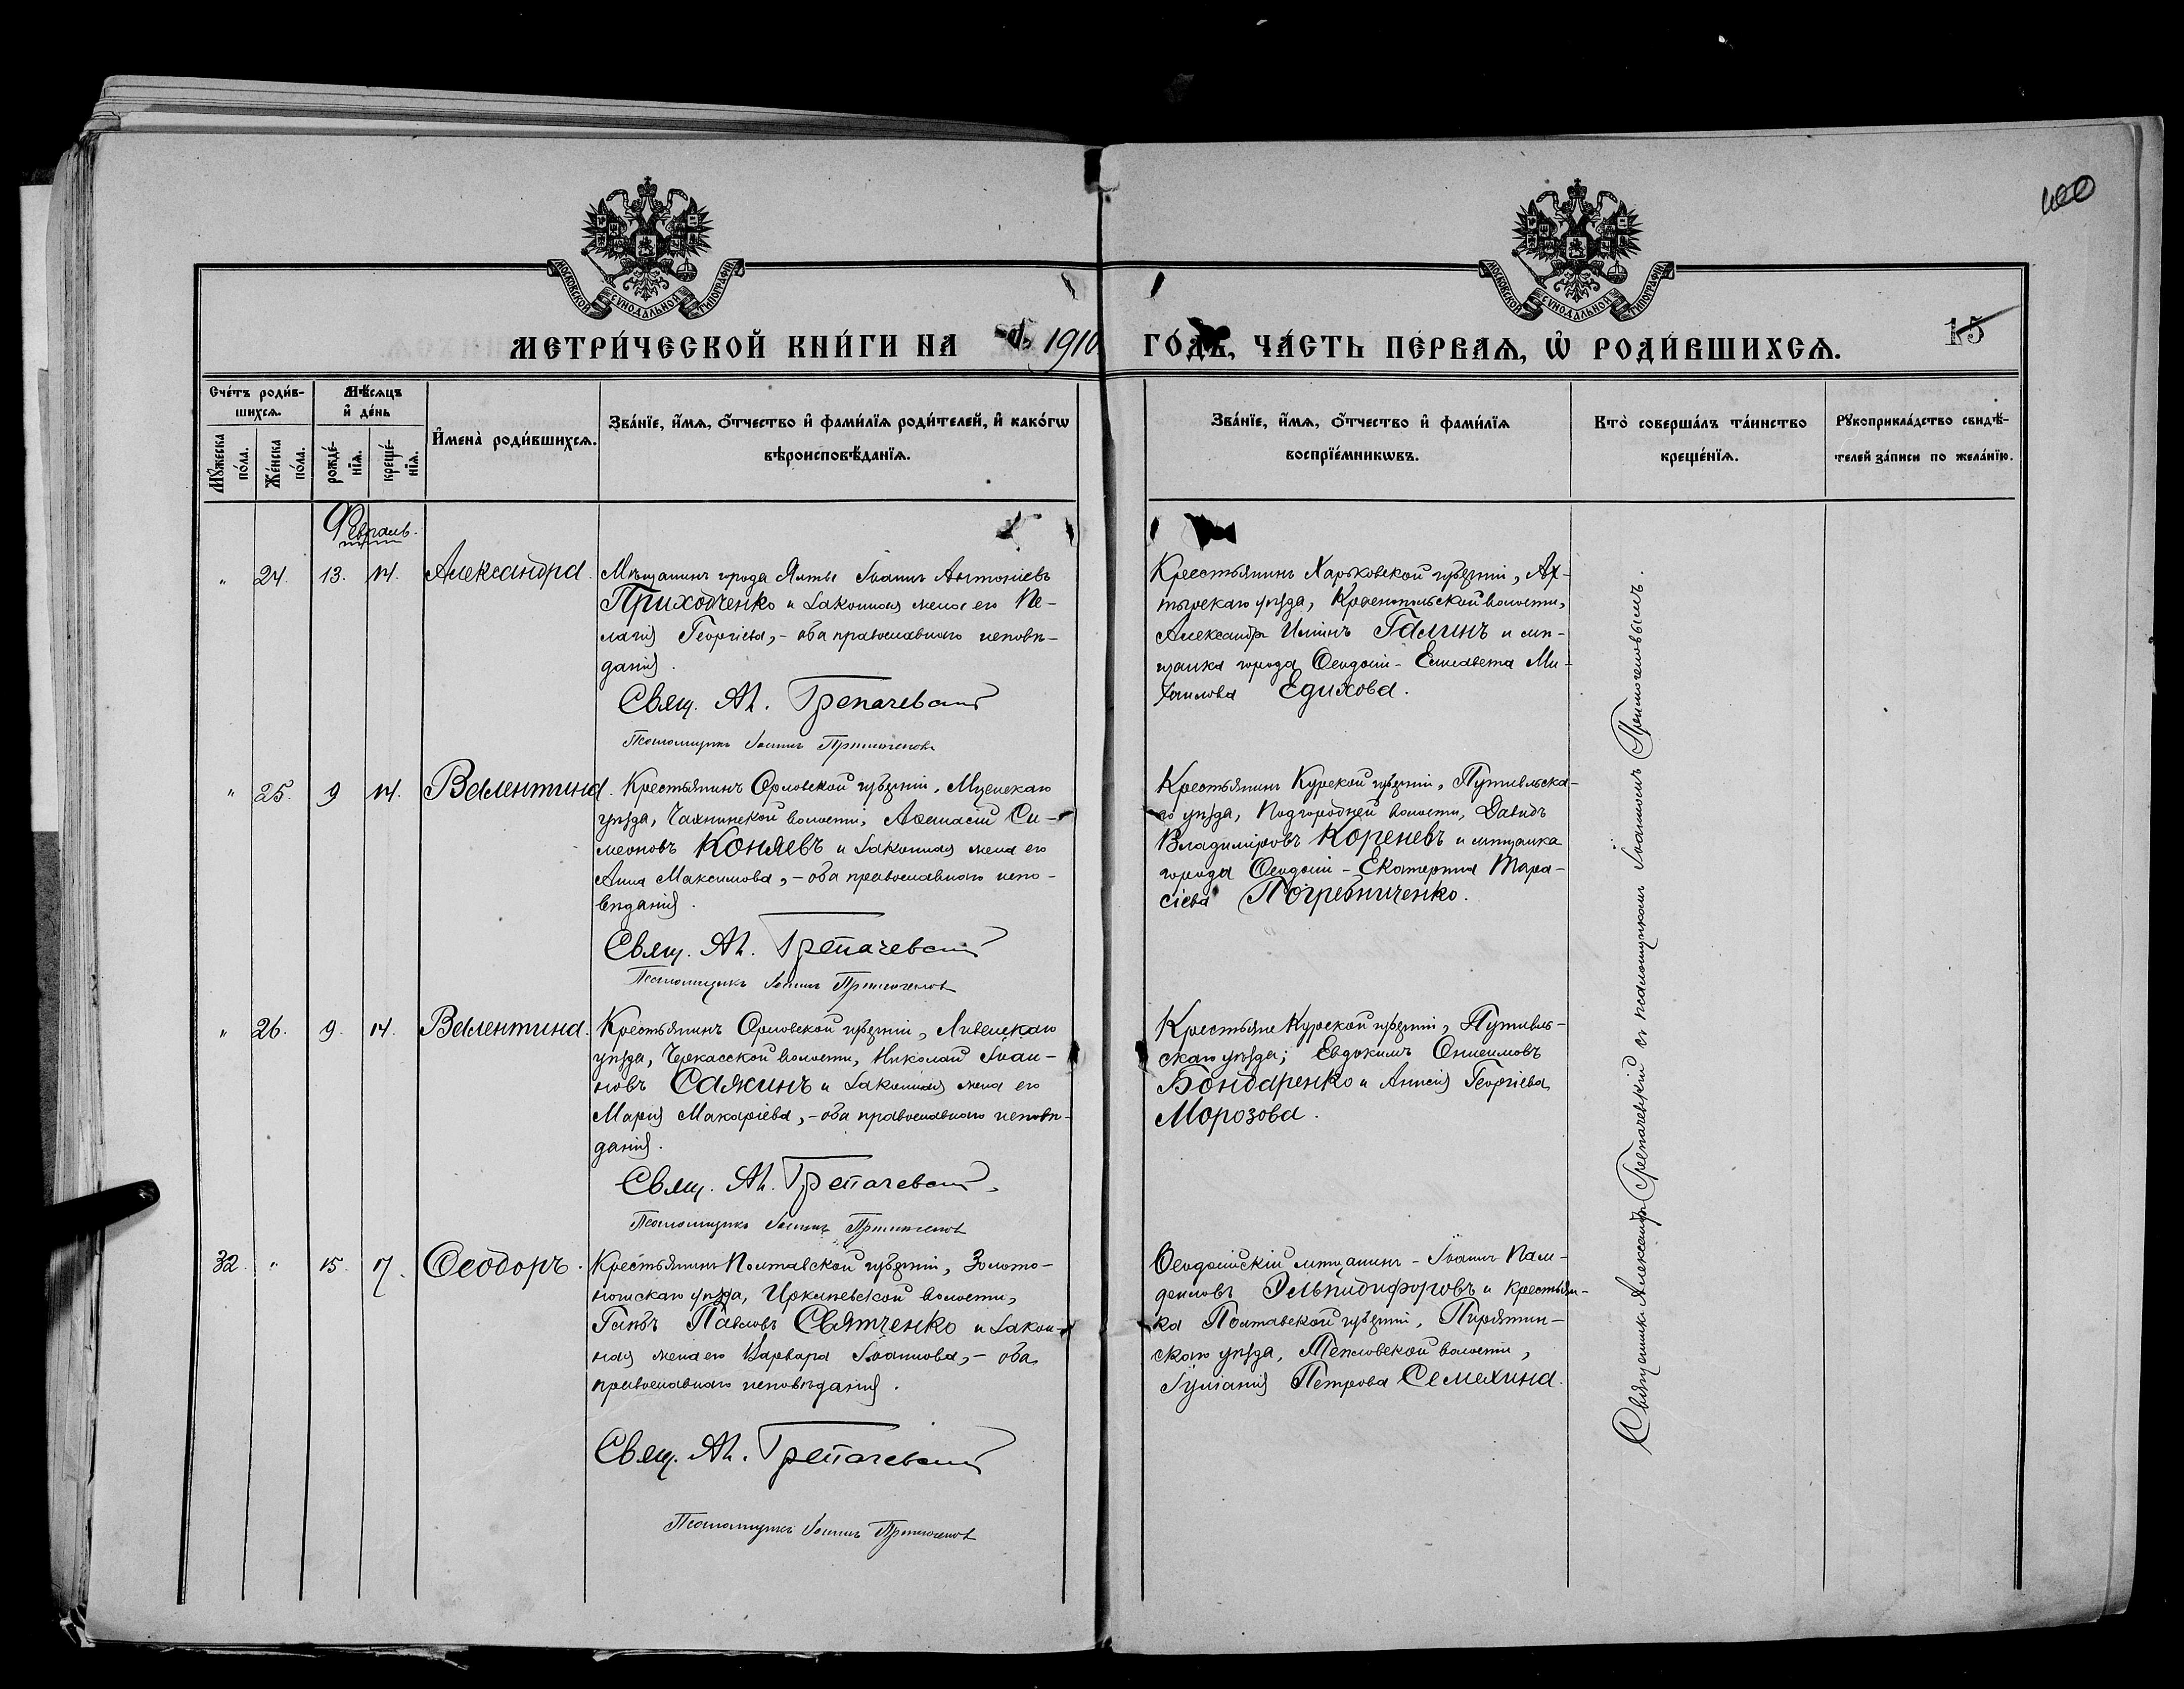 100
МОСКОВСКОЙ СѴНОДАЛЬНОЙ ТИПОГРАФІИ
МОСКОВСКОЙ СѴНОДАЛЬНОЙ ТИПОГРАФІИ
МЕТРИ́ЧЕСКОЙ КНИ́ГИ НА 1910 ГО́ДЪ, ЧА́СТЬ ПЕ́РВАѦ, Ѡ҆ РОДИ́ВШИХСѦ.
15
Сче́тъ роди́в-
шихсѧ.
Мꙋ́жеска по́ла.
Же́нска по́ла.
Мѣ́сѧцъ
и҆ де́нь
рожде́-
нїѧ.
креще́-
нїѧ.
И҆мена̀ роди́вшихсѧ.
Зва́нїе, и҆́мѧ, ѻ҆́тчество и҆ фами́лїѧ роди́телей, и҆ како́гѡ
вѣроисповѣ́данїѧ.
Зва́нїе, и҆́мѧ, ѻ҆́тчество и҆ фами́лїѧ
воспрїе́мникѡвъ.
Кто̀ соверша́лъ та́инство
креще́нїѧ.
Рꙋкоприкла́дство свидѣ́-
телей за́писи по жела́нїю.
Февраль.
" 24. 13. 14. Александра.
Мѣщанинъ города Ялты Іоаннъ Антоніевъ
Приходченко и законная жена его Пе-
лагія Георгіева, - оба православнаго исповѣ-
данія.
Свящ. Ал. Трепачевскій
Псаломщикъ Іоаннъ
Крестьянинъ Харьковской губерніи, Ах-
тырскаго уѣзда, Краснопольской волости,
Александръ Иліинъ Галинъ и мѣ-
щанка города Ѳеодосіи - Елисавета Ми-
хаилова Едихова.
" 25. 9 14. Валентина.
Крестьянинъ Орловской губерніи, Мценскаго
уѣзда, волости, Аѳанасій Си-
меоновъ Коняевъ и законная жена его
Анна Максимова, - оба православнаго испо-
вѣданія.
Свящ. Ал. Трепачевскій
Псаломщикъ Іоаннъ
Крестьянинъ Курской губерніи, Путивльска-
го уѣзда, Подгородней волости, Давидъ
Владиміровъ Кореневъ и мѣщанка
города Ѳеодосіи - Екатерина Тара-
сіева Погребниченко.
" 26. 9. 14. Валентина.
Крестьянинъ Орловской губерніи, Ливенскаго
уѣзда, Черкасской волости, Николай Іоан-
новъ Сажинъ и законная жена его
Марія Макаріева, - оба православнаго исповѣ-
данія.
Свящ. Ал. Трепачевскій
Псаломщикъ Іоаннъ
Крестьяне Курской губерніи, Путивль-
скаго уѣзда; Евдокимъ Онисимовъ
Бондаренко и Анисія Георгіева
Морозова.
32. " 15. 17. Ѳеодоръ.
Крестьянинъ Полтавской губерніи, Золото-
ношскаго уѣзда, Ирклѣевской волости,
Глѣбъ Павловъ Святченко и закон-
ная жена его Варвара Іоаннова, - оба
православнаго исповѣданія.
Свящ. Ал. Трепачевскій
Псаломщикъ Іоаннъ
Ѳеодосійскій мѣщанинъ - Іоаннъ
Эльпидифоровъ и крестьян-
ка Полтавской губерніи, Пирятин-
скаго уѣзда, Тепловской волости,
Іуліанія Петрова Семехина.
Священникъ Александръ Трепачевскій съ псаломщикомъ Іоанномъ